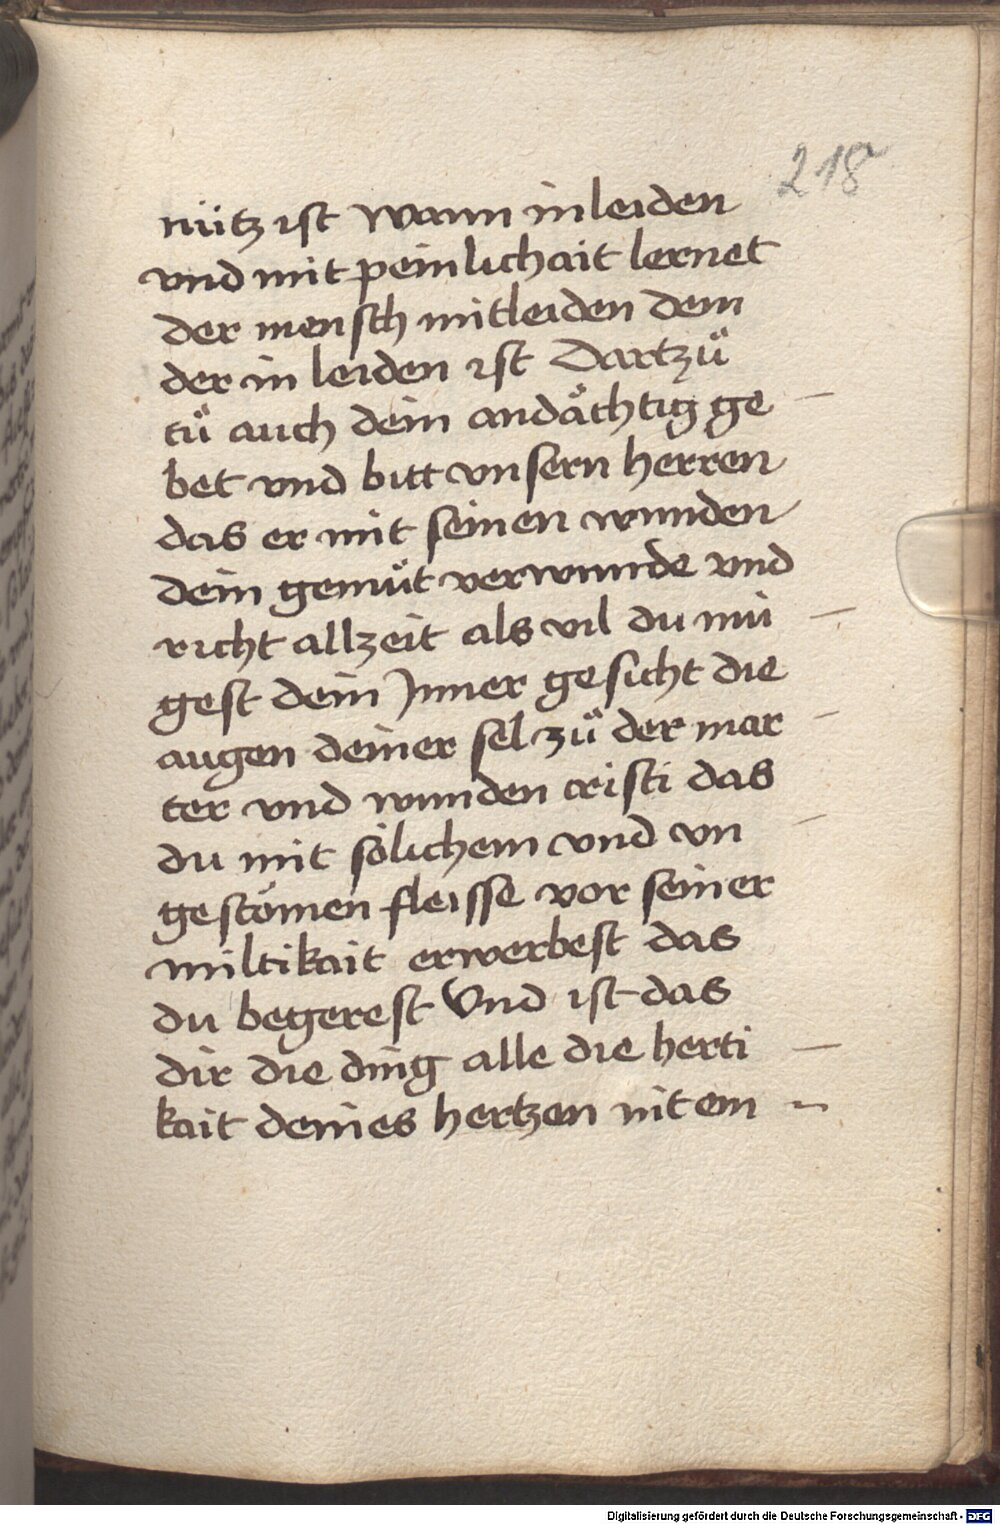 218
nütz ist Wann in leiden
vnd mit peinlichait lernet
der mensch mitleiden dem
der in leiden ist Dartzuͦ
tuͦ auch dein andächtig ge
bet vnd bitt vnsern herren
das er mit seinen wunden
dein gemuͤt verwunde vnd
richt allzeit als vil du mü
gest dein Inner gesicht die
augen deiner sel zuͦ der mar
ter vnd wunden cristi das
du mit sölichem vnd vn
gestömen fleisse vor seiner
miltikait erwerbest das
du begerest Vnd ist das
dir die ding alle die herti
kait deines hertzen nit em
Digitalisierung gefördert durch die Deutsche Forschungsgemeinschaft - DFG